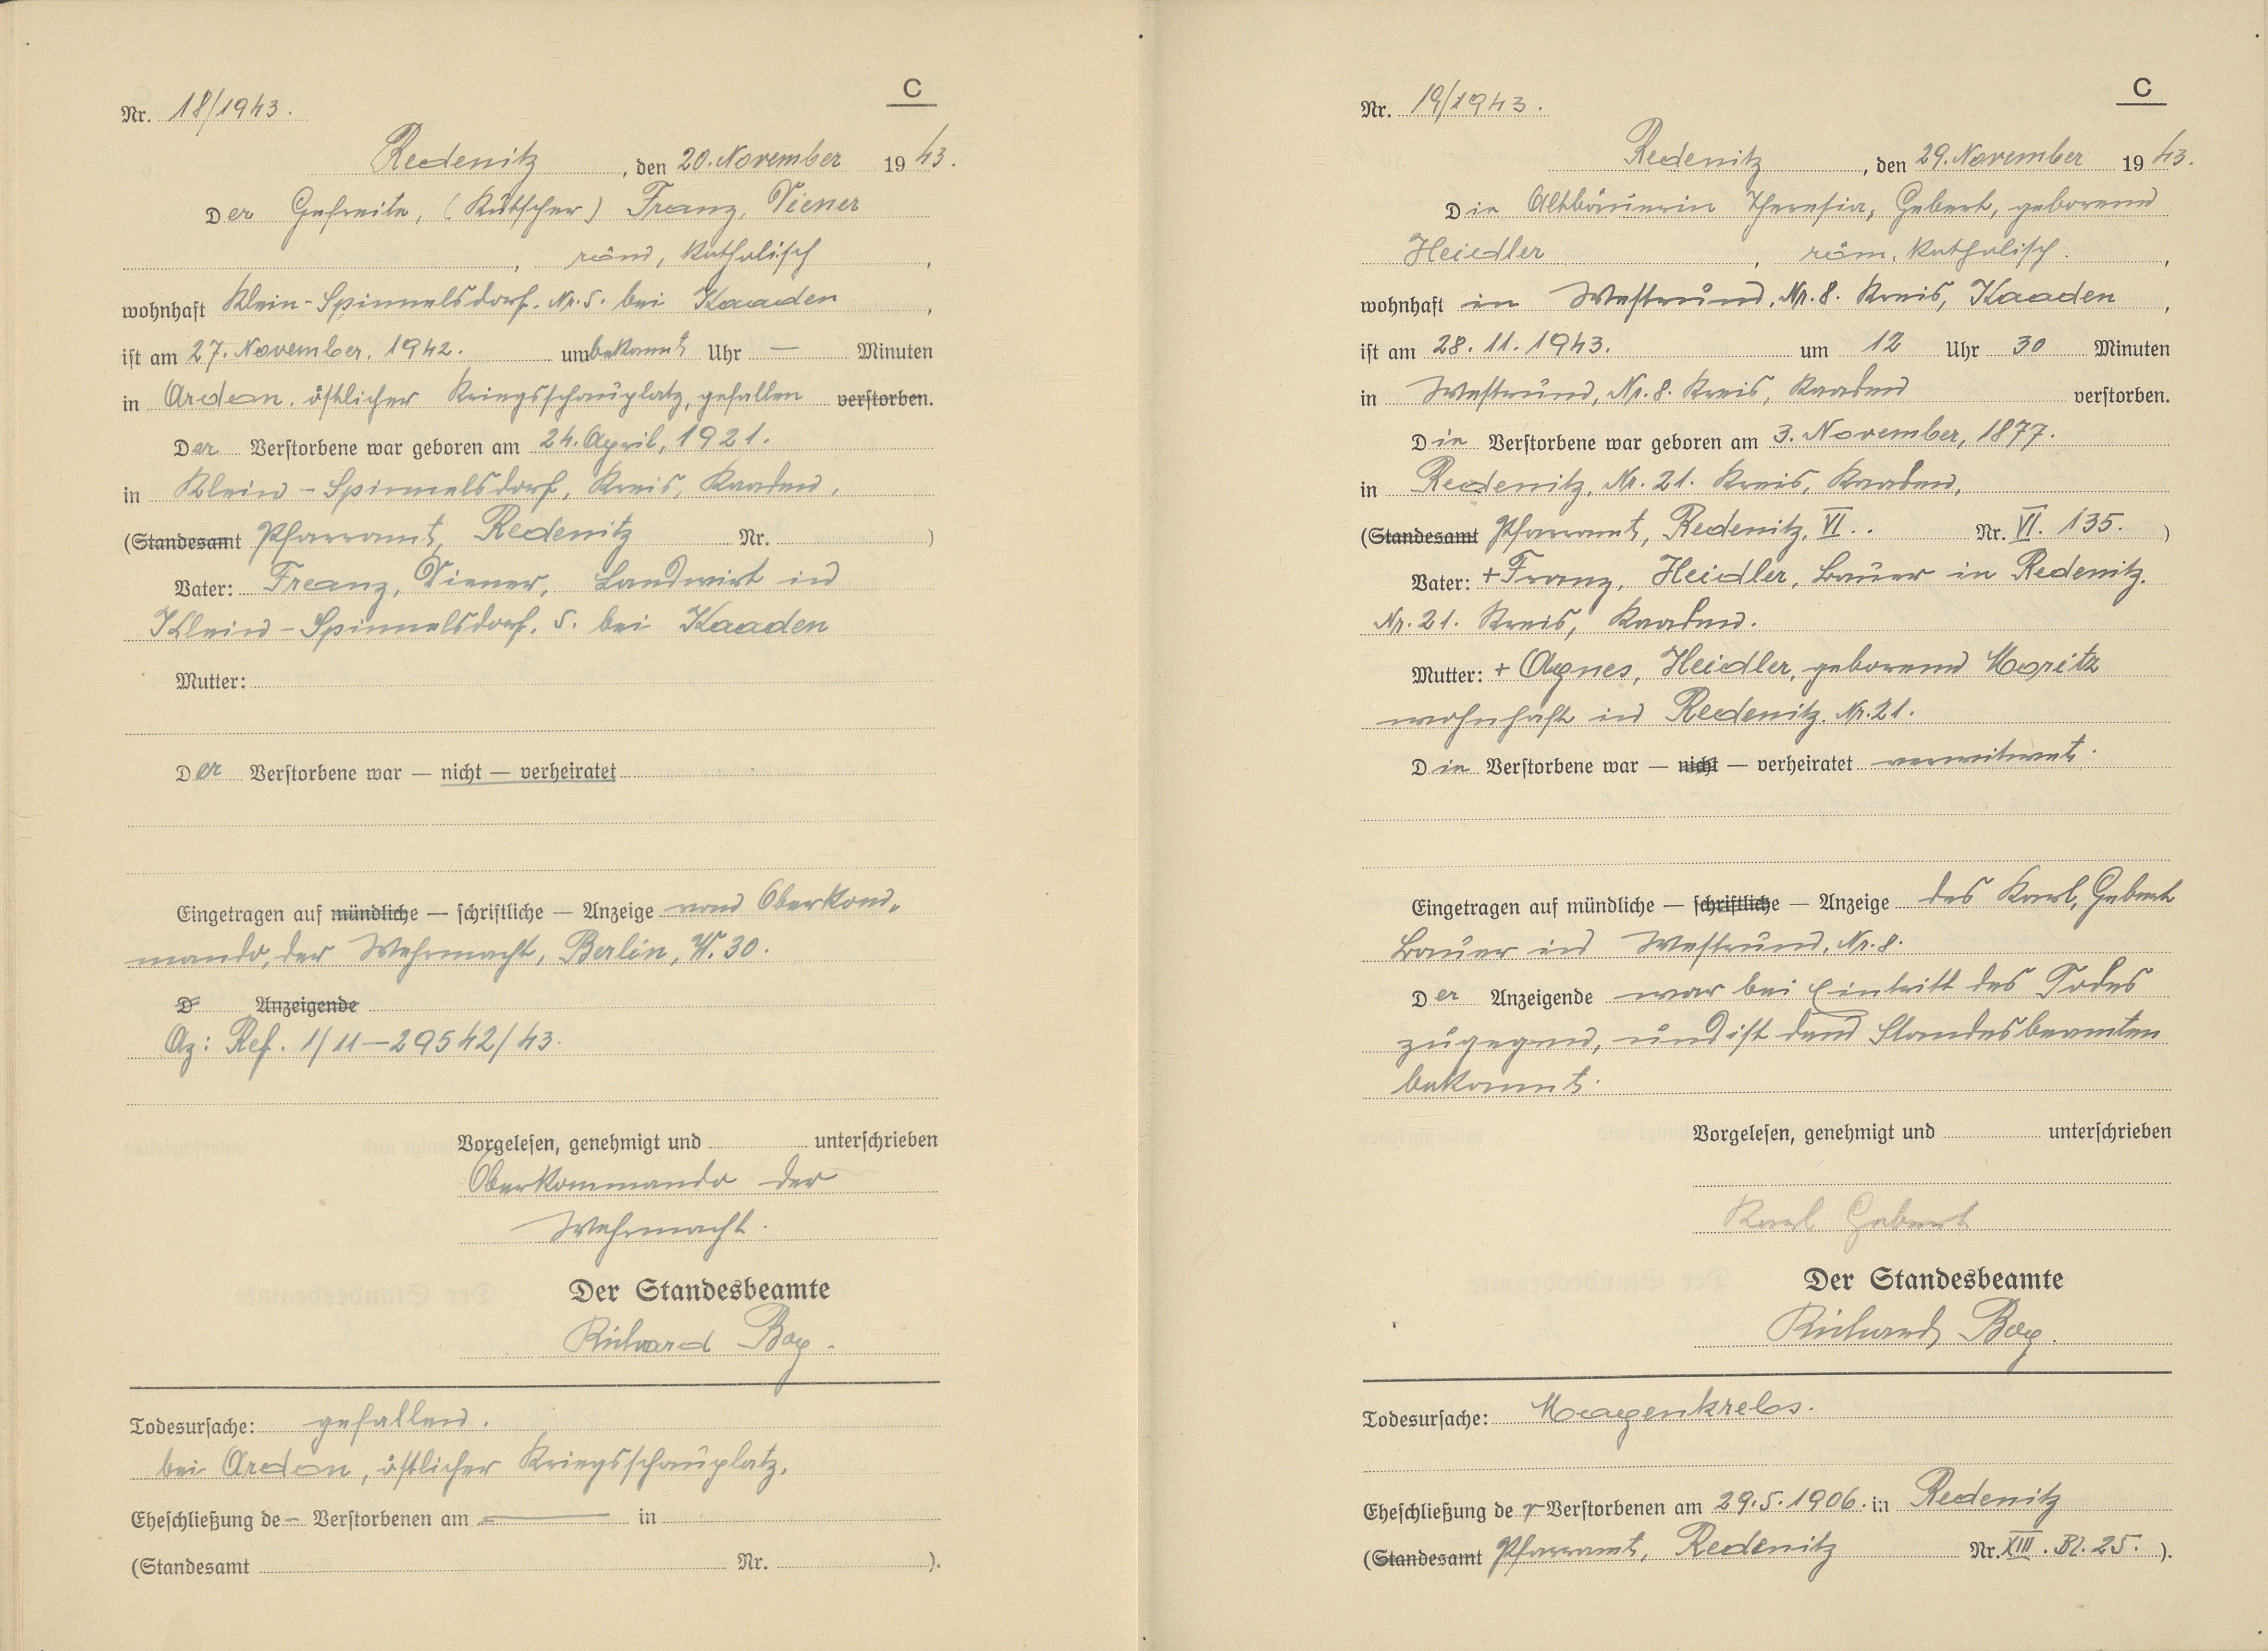 C
Nr. 18/1943.
Redenitz, den 20. November 1943.
Der Gefreite, (Kutscher) Franz, Diener
, röm, katholisch,
wohnhaft Klein-Spinnelsdorf. Nr. 5. bei Kaaden,
ist am 27. November, 1942. um unbekannt Uhr — Minuten
in Ardon. östlicher Kriegsschauplatz, gefallen verstorben.
Der Verstorbene war geboren am 24. April, 1921.
in Klein-Spinnelsdorf, Kreis, Kaaden,
(Standesamt Pfarramt, Redenitz Nr. )
Vater: Franz, Diener, Landwirt in
Klein-Spinnelsdorf. 5. bei Kaaden
Mutter:
Der Verstorbene war — nicht — verheiratet
Eingetragen auf mündliche — schriftliche — Anzeige vom Oberkom-
mando, der Wehrmacht, Berlin, W. 30.
D Anzeigende
Az: Ref. 1/11—29542/43.
Vorgelesen, genehmigt und unterschrieben
Oberkommando der
Wehrmacht.
Der Standesbeamte
Richard Bog.
Todesursache: gefallen.
bei Ardon, östlicher Kriegsschauplatz.
Eheschließung de– Verstorbenen am — in
(Standesamt Nr. ).
C
Nr. 19/1943.
Redenitz, den 29. November 1943.
Die Altbäuerin Theresia, Gebert, geborene
Heidler, röm. katholisch.,
wohnhaft in Westrum, Nr. 8. Kreis, Kaaden,
ist am 28. 11. 1943. um 12 Uhr 30 Minuten
in Westrum, Nr. 8. Kreis, Kaaden verstorben.
Die Verstorbene war geboren am 3. November, 1877.
in Redenitz, Nr. 21. Kreis, Kaaden,
(Standesamt Pfarramt, Redenitz, VI.. Nr. VI. 135. )
Vater: + Franz, Heidler, Bauer in Redenitz.
Nr. 21. Kreis, Kaaden.
Mutter: + Agnes, Heidler, geborene Moritz
wohnhaft in Redenitz. Nr. 21.
Die Verstorbene war — nicht — verheiratet verwitwet.
Eingetragen auf mündliche — schriftliche — Anzeige des Karl, Gebert
Bauer in Westrum, Nr. 8.
Der Anzeigende war bei Eintritt des Todes
zugegen, und ist dem Standesbeamten
bekannt.
Vorgelesen, genehmigt und unterschrieben
Karl Gebert
Der Standesbeamte
Richard Bog.
Todesursache: Magenkrebs.
Eheschließung der Verstorbenen am 29. 5. 1906. in Redenitz
(Standesamt Pfarramt, Redenitz Nr. XIII. Bl. 25. ).